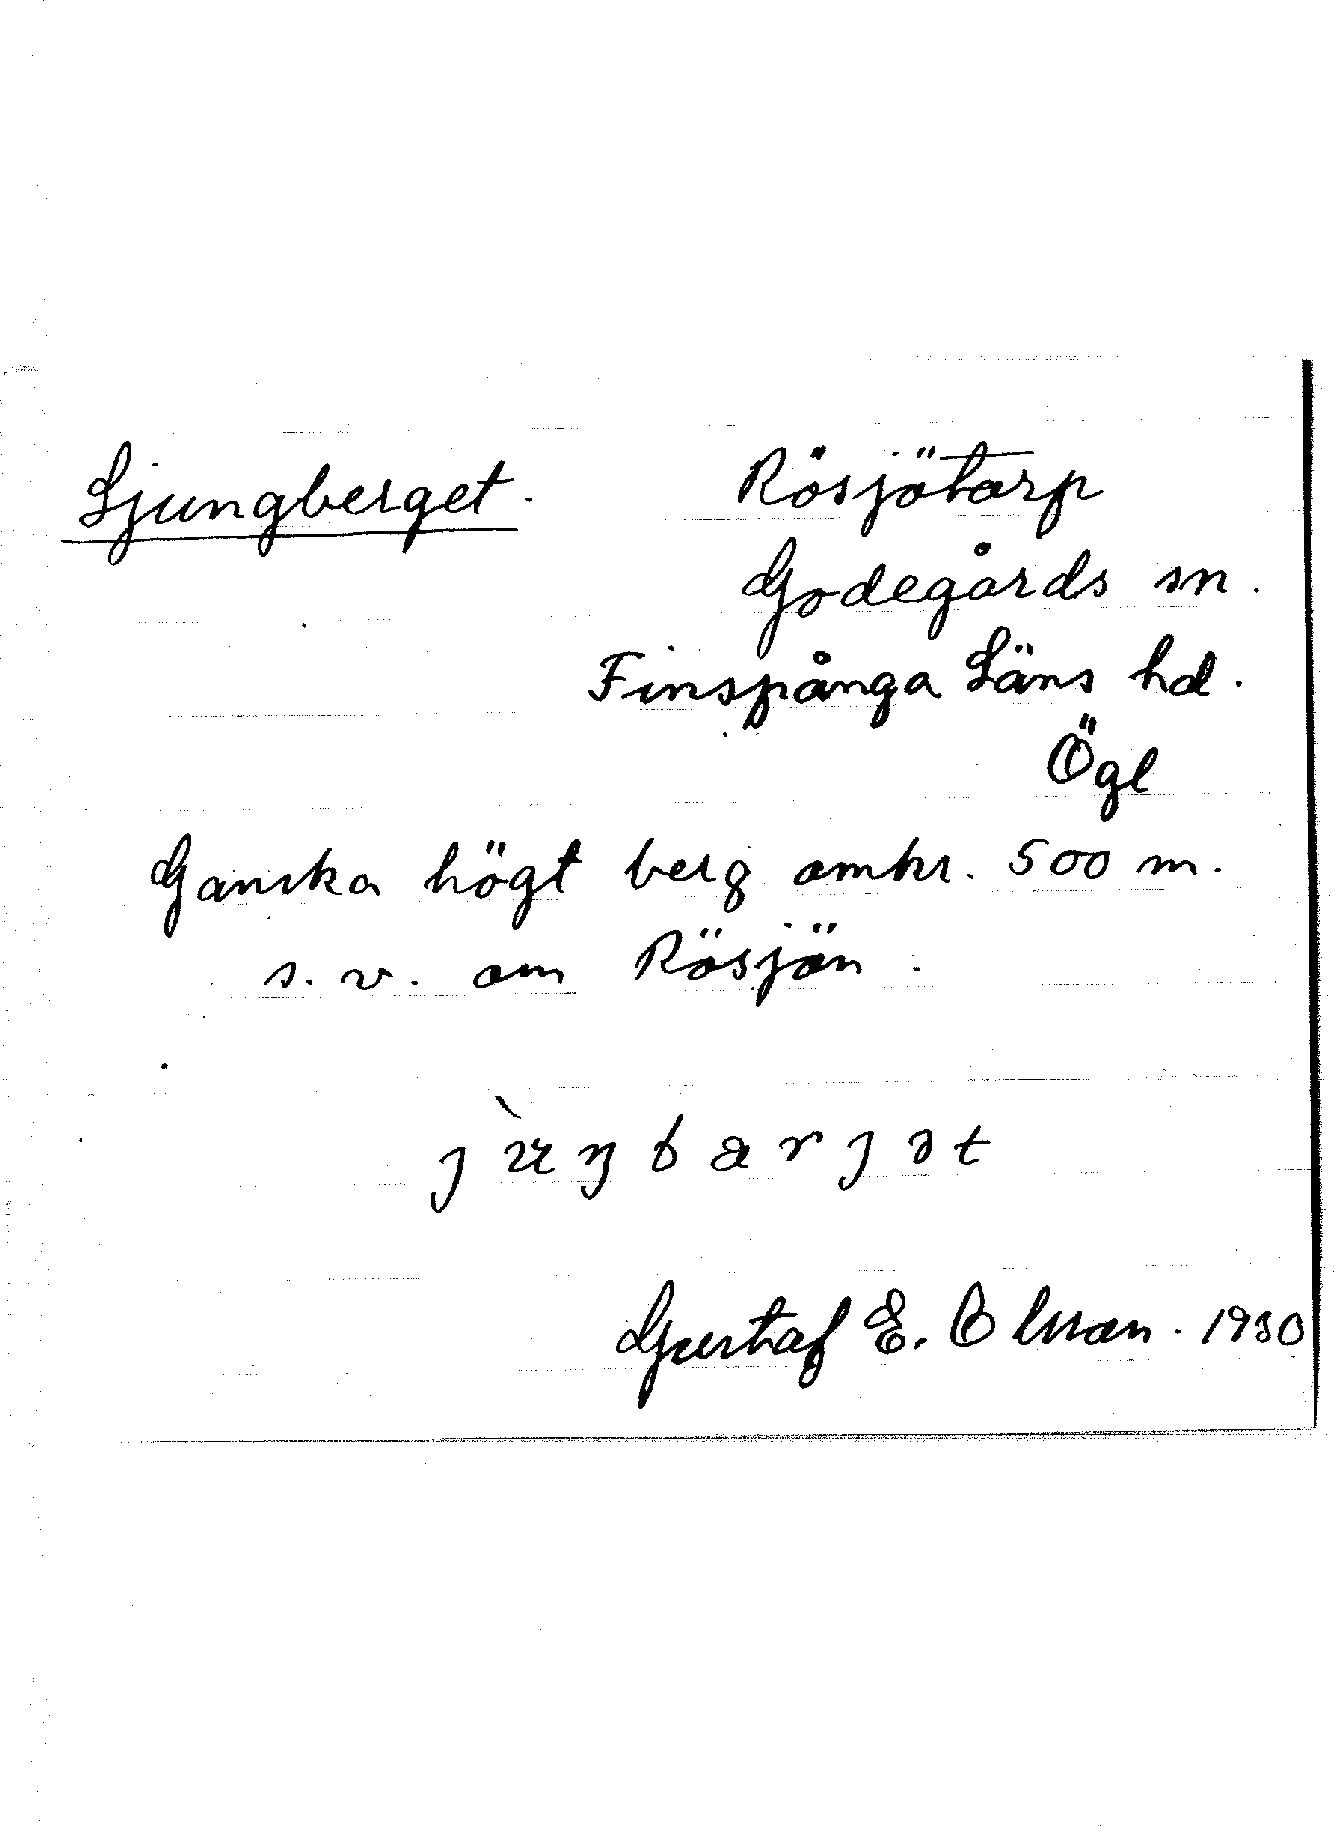 Ljungberget. Rösjötorp
Godegårds sn.
Finspånga Läns hd.
Ögl
Ganska högt berg omkr. 500 m.
s. v. om Rösjön.
Gustaf E. Olsson. 1930